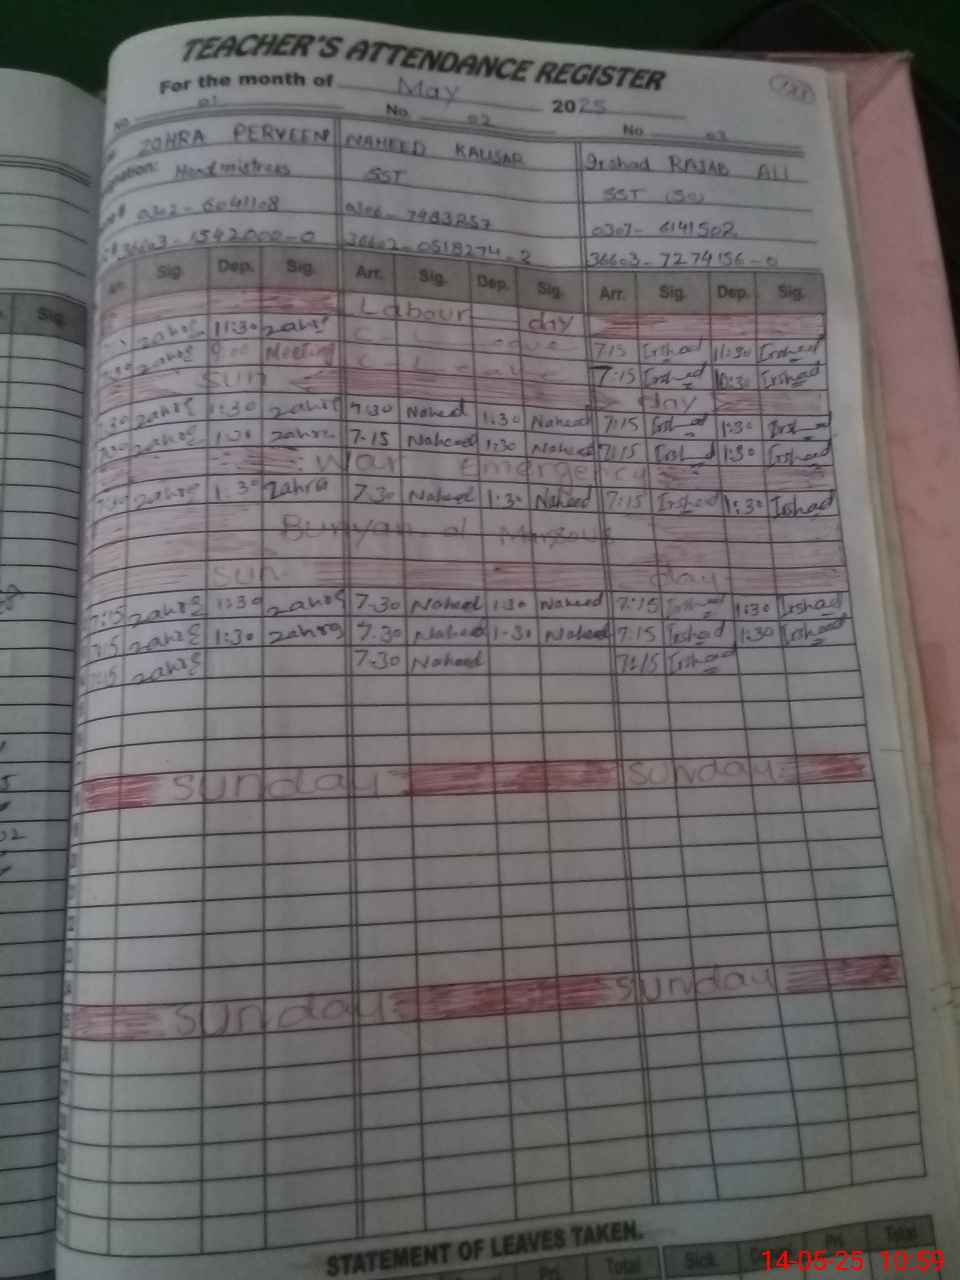 TEACHER'S ATTENDANCE REGISTER
For the month of May 2025
No. 01 No. 02 No. 03
ZOHRA PERVEEN NAHEED KAUSAR Irshad RAJAB ALI
Headmistress SST SST (Sc)
0302-6041108 0306-7983257 0307-6141502
36603-1542000-0 36602-0518274-2 36603-7274156-0
Arr. Sig. Dep. Sig. Arr. Sig. Dep. Sig. Arr. Sig. Dep. Sig.
Labour day
zahre 11:30 zahre C. L 7:15 Irshad 11:30 Irshad
zahre 9:00 Meeting C. Leave 7:15 Irshad 10:30 Irshad
Sun day
7:30 zahre 1:30 zahre 7:30 Naheed 1:30 Naheed 7:15 Irshad 1:30 Irshad
7:30 zahre 1:30 zahre 7-15 Naheed 1:30 Naheed 7:15 Irshad 1:30 Irshad
War Emergency
7:30 zahre 1:30 zahre 7.30 Naheed 1:30 Naheed 7:15 Irshad 1:30 Irshad
Bunyan al Marsous
Sun day
7:15 zahre 1:30 zahre 7-30 Naheed 1:30 Naheed 7:15 Irshad 1:30 Irshad
7:15 zahre 1:30 zahre 7.30 Naheed 1-30 Naheed 7:15 Irshad 1:30 Irshad
7:15 zahre 7-30 Naheed 7:15 Irshad
Sunday Sunday
Sunday Sunday
STATEMENT OF LEAVES TAKEN.
Total Sick. Pri. Total
14-05-25 10:59